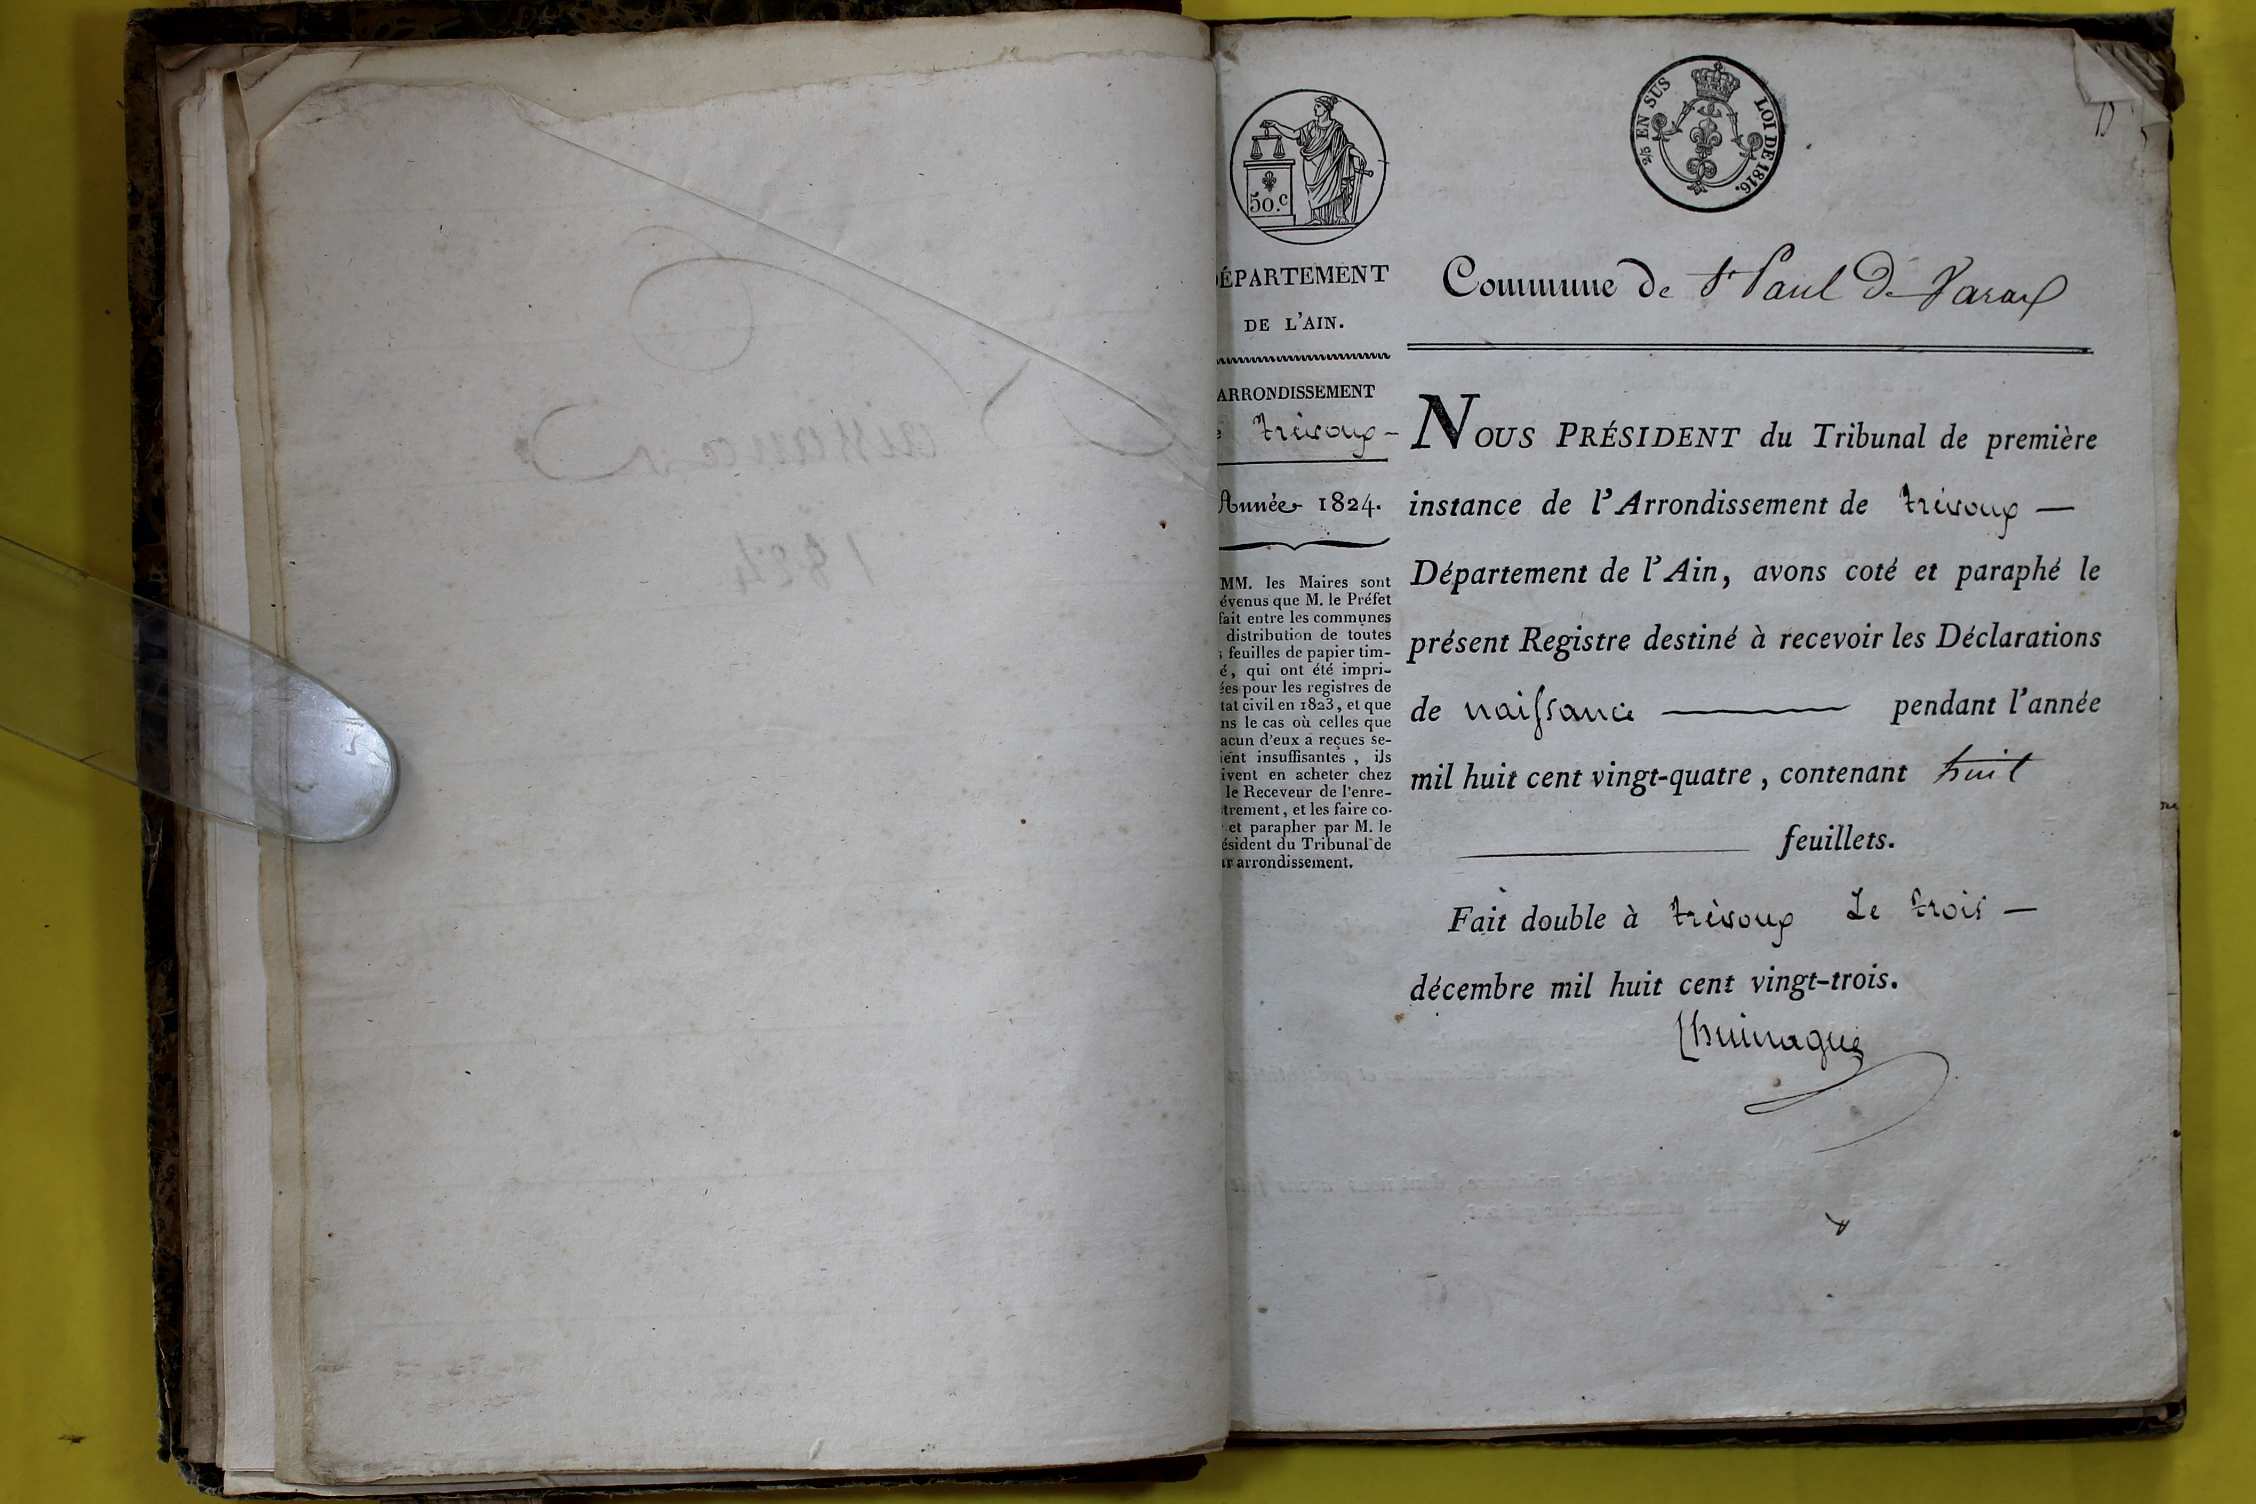 Naissances
1824
50.c
25 EN SUS LOI DE 1816.
ÉPARTEMENT
DE L'AIN.
ARRONDISSEMENT
e trévoux —
Année 1824.
MM. les Maires sont
évenus que M. le Préfet
fait entre les communes
distribution de toutes
s feuilles de papier tim-
é, qui ont été impri-
ées pour les registres de
tat civil en 1823, et que
ns le cas où celles que
acun d'eux a reçues se-
ient insuffisantes, ils
ivent en acheter chez
le Receveur de l'enre-
trement, et les faire co-
r et parapher par M. le
ésident du Tribunal de
ur arrondissement.
Commune de St Paul De Varax
NOUS PRÉSIDENT du Tribunal de première
instance de l'Arrondissement de trévoux —
Département de l'Ain, avons coté et paraphé le
présent Registre destiné à recevoir les Déclarations
de naissance — pendant l'année
mil huit cent vingt-quatre, contenant huit
— feuillets.
Fait double à trévoux Le trois —
décembre mil huit cent vingt-trois.